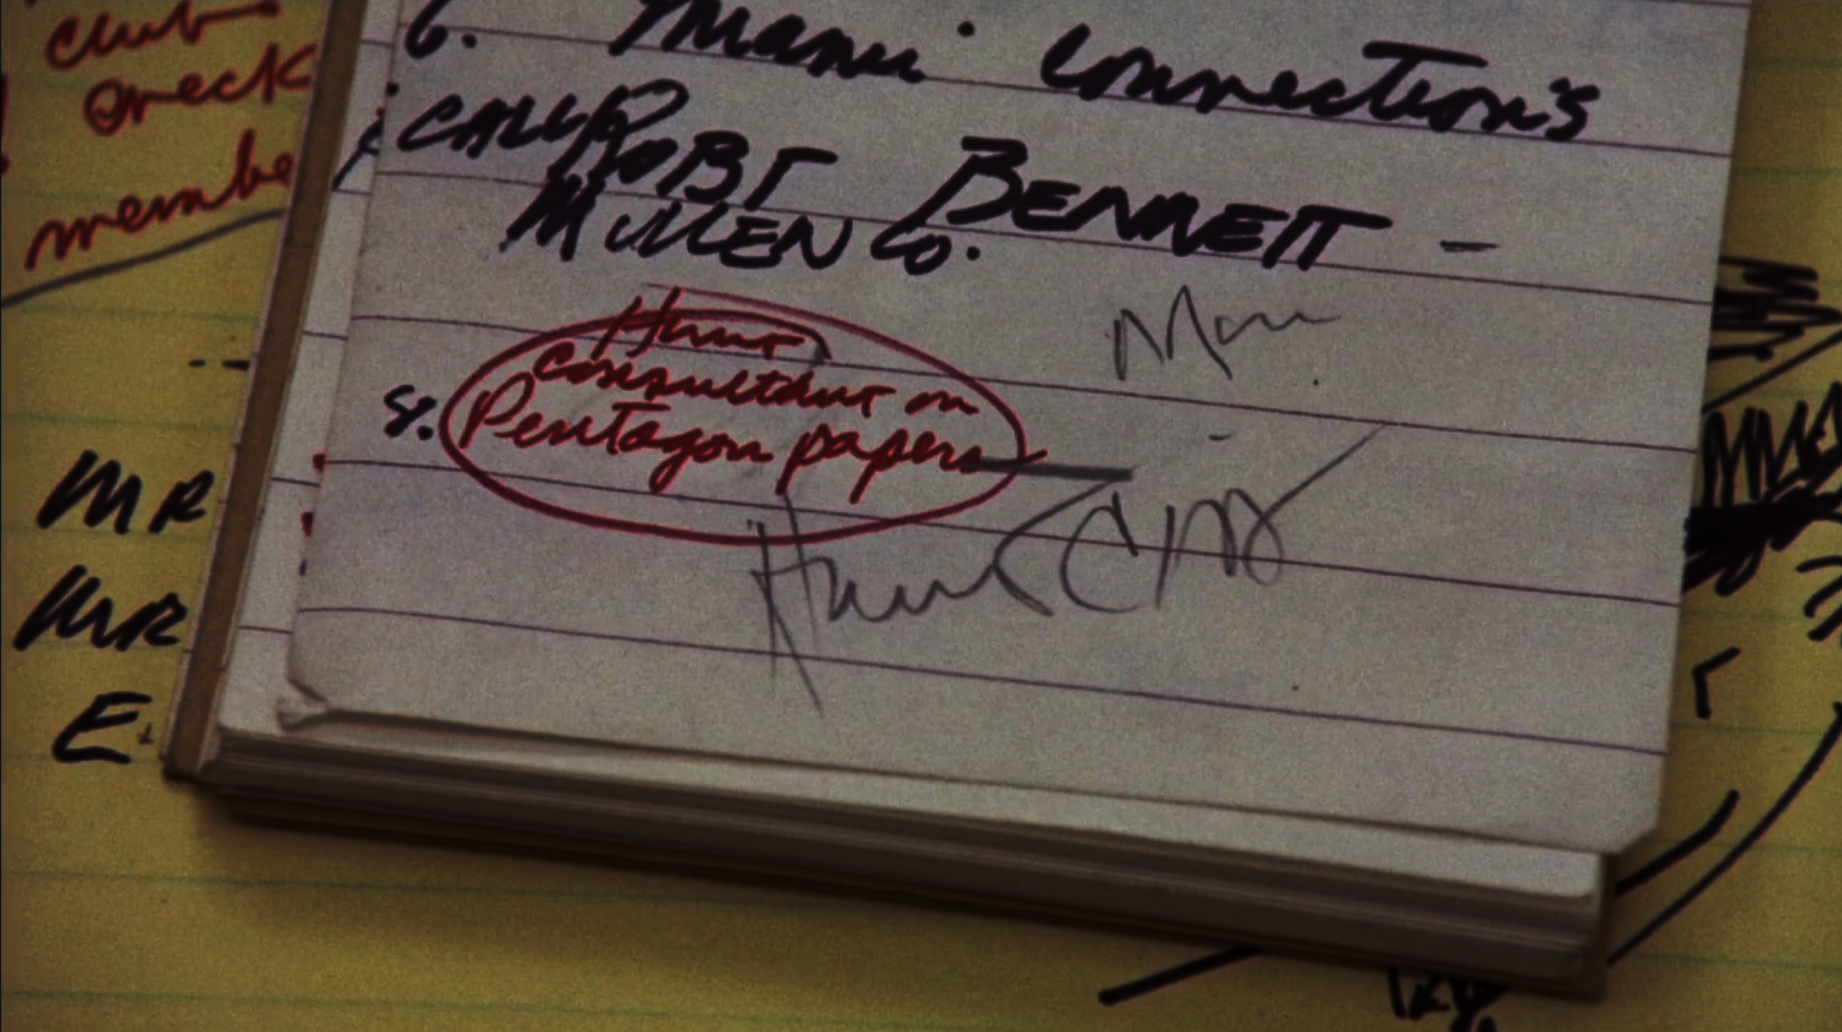 club
check
membe
6. Miami Connection's
CALL ROBT BENNETT -
MULLEN Co.
Hunt
consultant on
Pentagon papers
Hunt CIA
MR
MR
E